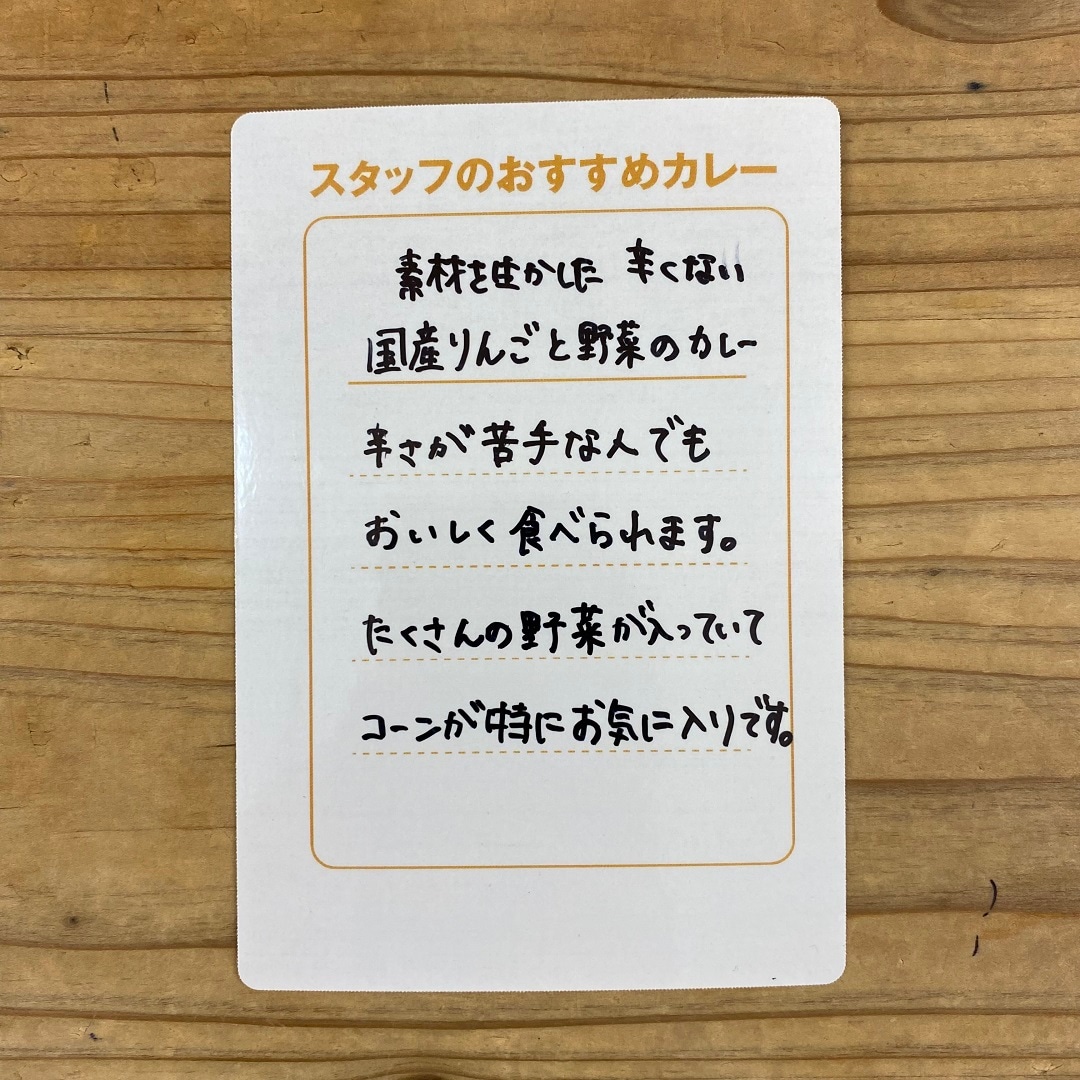 スタッフのおすすめカレー
素材を生かした 辛くない
国産りんごと野菜のカレー
辛さが苦手な人でも
おいしく食べられます。
たくさんの野菜が入っていて
コーンが特にお気に入りです。